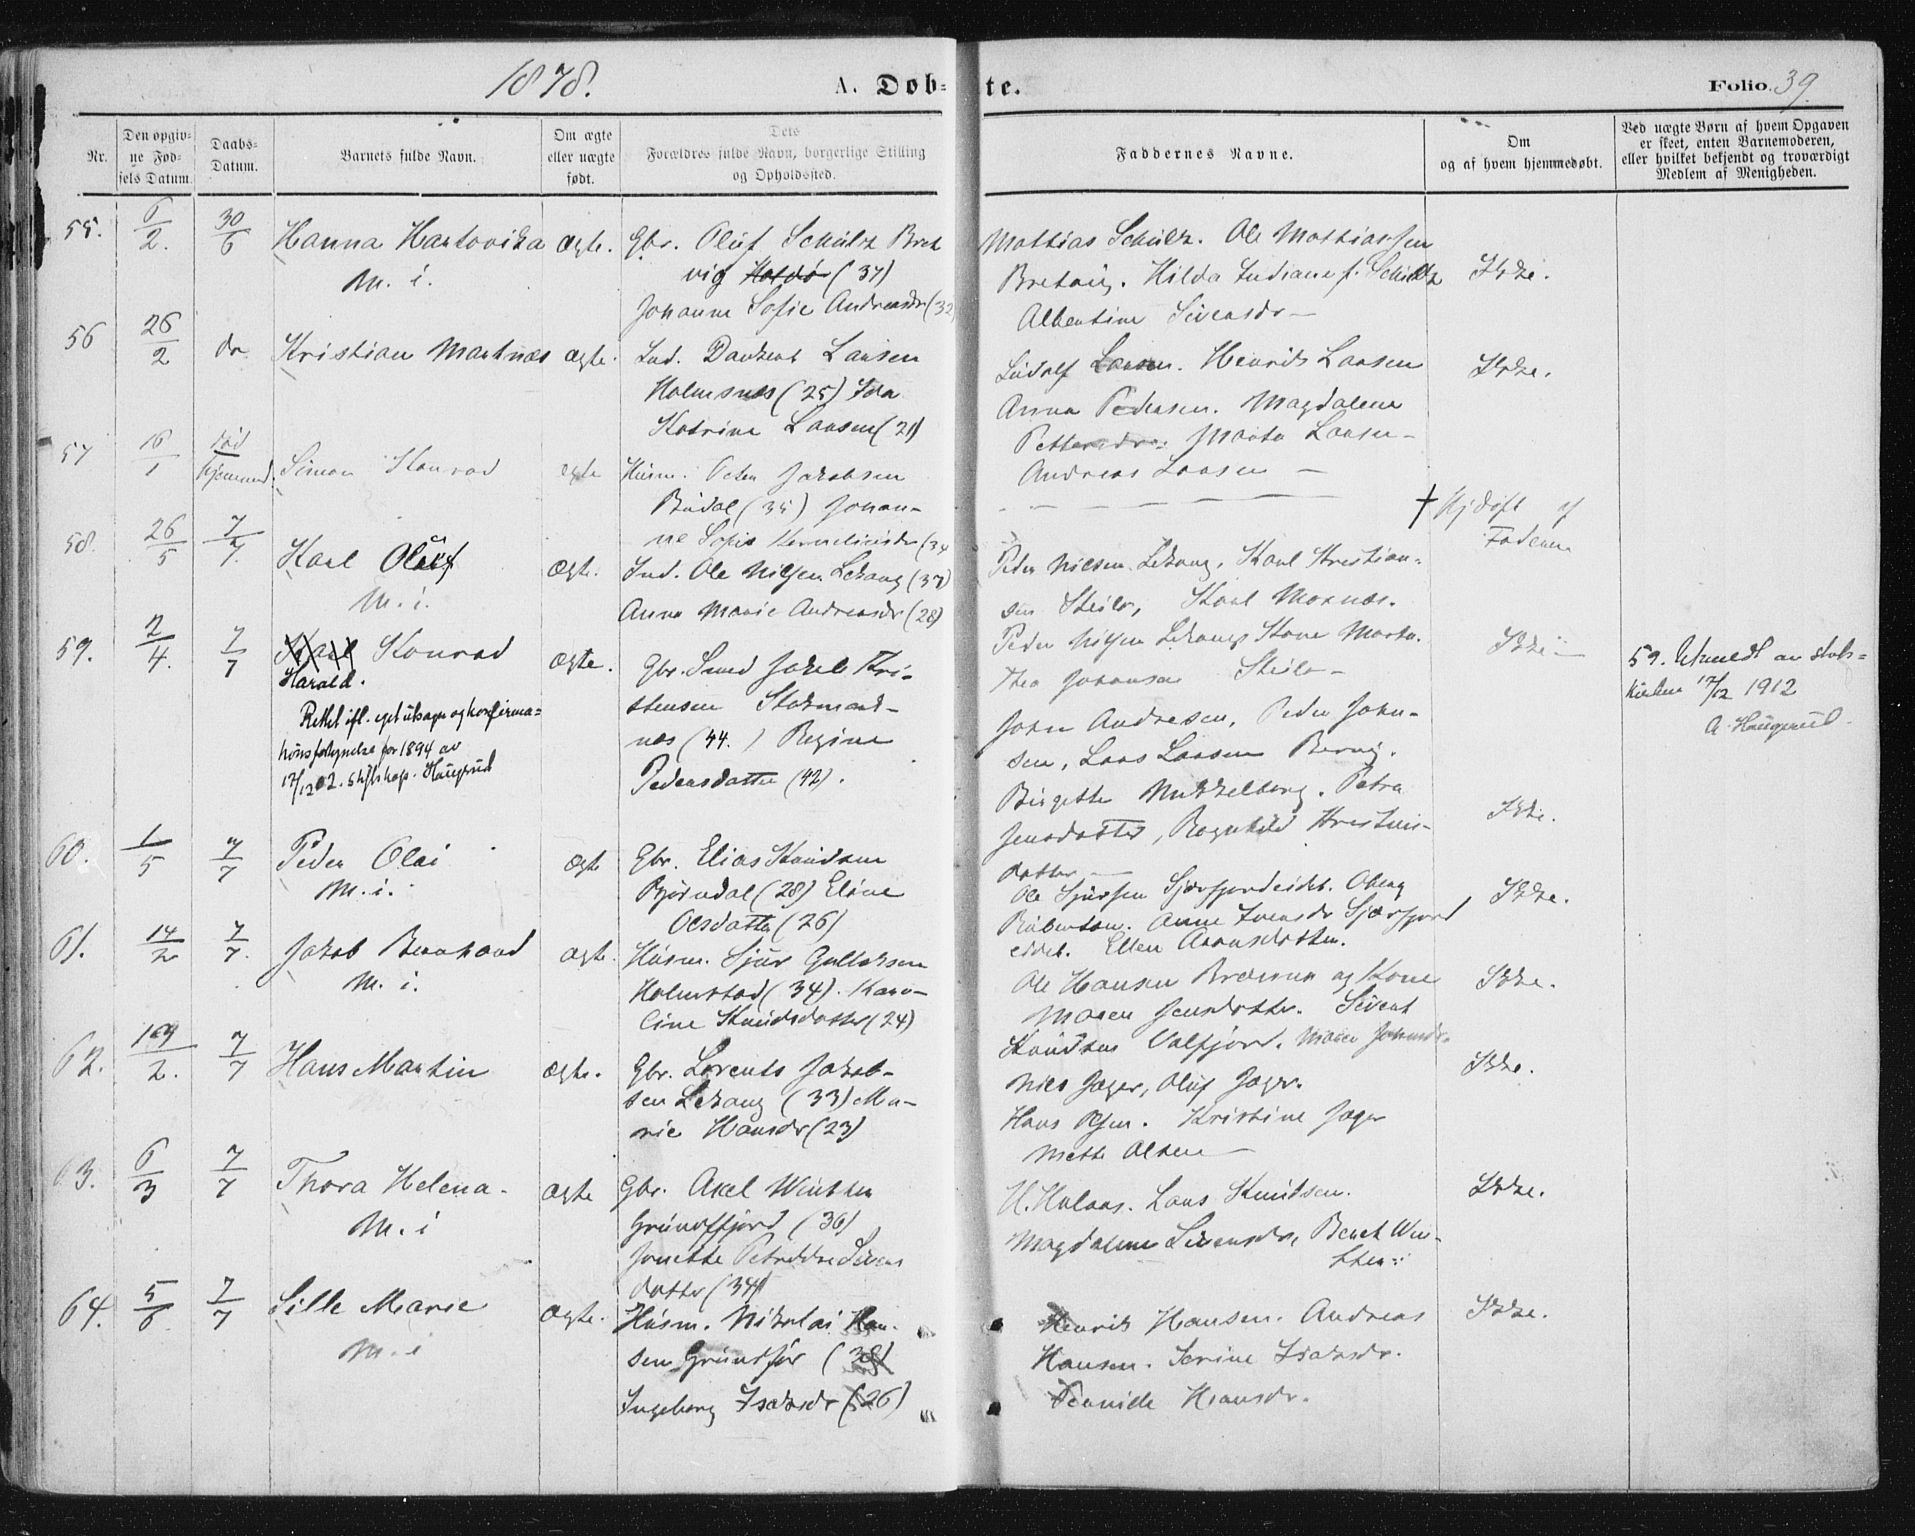 1878.
A. Døb-
te.
Folio. 39.
Nr.
Den opgiv-
ne Fød-
sels Datum.
Daabs-
Datum.
Barnets fulde Navn.
Om ægte
eller uægte
født.
Dets
Forældres fulde Navn, borgerlige Stilling
og Opholdssted.
Faddernes Navne.
Om
og af hvem hjemmedøbt.
Ved uægte Børn af hvem Opgaven
er skeet, enten Barnemoderen,
eller hvilket bekjendt og troværdigt
Medlem af Menigheden.
55. 6/2. 30/6 Hanna Hartvika ægte. Gbr. Oluf Schulz Bret
M. i. vig (37)
Johanne Sofie Andreasdr (32)
Mathias Schulz. Ole Mathiassen
Bretvig. Hilda Indiane f. Schultz Ikke.
Albertine Sivensdr
56 26/2 do Kristian Martnæs ægte. Ind. Larsen
Holmsnes (25) Ida
Katrine Larsen (21)
Ludolf Larsen. Henrik Larsen Ikke.
Anna Pedersen. Magdalena
Pettersdr. Marta Larsen
Andreas Larsen
57 16/1 død hjemmed. Simon Konrad ægte Husm. Peter Jakobsen
Budal (35) Johan-
ne Sofie Korneliusdr (34
† Hjdøft af
Faderen
58. 26/5 7/7. Karl Oluf ægte. Ind. Ole Nilsen Lekang (37)
M. i. Anna Marie Andreasdr (28)
Peder Nielsen Lekang. Karl Kristian-
sen Steilo, Karl Moxnæs.
Peder Nilsen Lekangs Kone Marta. Ikke
Thea Johansen Steilo
59. 2/4. 7/7 Karl Konrad ægte. Gbr. Smed Jakob Kri-
Harald. stensen Stokmark-
næs (44.) Regine
Pedersdatter (42).
Rettet ifl. eget utsagn og konfirma-
tionsfortegnelse for 1894 av
17/12 02. Haugerud
John Andresen, Peder John-
sen, Lars Larsen Bervig.
Birgitte Mikkelborg. Petra Ikke.
Jensdatter, Ragnhild Kristens-
datter
59. Utmeldt av stats-
kirken 17/12 1912
A. Haugerud
60. 1/5 7/7 Peder Olai ægte Gbr. Elias Knudsen
M. i. Bjørndal (28) Eline
Olsdatter (26)
Ole Sjursen Sjørfjordeidet. Oberg Ikke.
Robertson. Anne Ivensdr Sjørfjord
eidet. Ellen Aronsdatter.
61. 14/2 7/7. Jakob Bernhard ægte. Husm. Sjur Gulleksen
M. i. Holmstad (34). Karo-
line Knudsdatter (24)
Ole Hansen og Kone Ikke.
Maren Jensdatter. Sivert
Knudsen Valfjord. Maren
62. 19/2. 7/7 Hans Martin ægte. Gbr. Lorents Jakob-
sen Lekang (33) Ma-
rie Hansdr (23)
Niels Jager, Oluf Jager. Ikke.
Hans Kristine Jager
Mette Olsen
63. 6/3 7/7 Thora Helena. ægte Gbr. Axel Winther
M. i Grundfjord (36)
Jonette Petrikke Sivers
datter (34)
H. Lars Knutsen. Ikke.
Magdalene Sivensdr, Beret Win-
ther
64. 5/6 7/7 Sille Marie ægte. Husm. Nikolai Han-
M. i sen Grundfør (38)
Ingeborg Isaksdr (26)
Henrik Hansen. Andreas Ikke.
Hansen. Serine Isaksdr.
Pernille Hansdr.